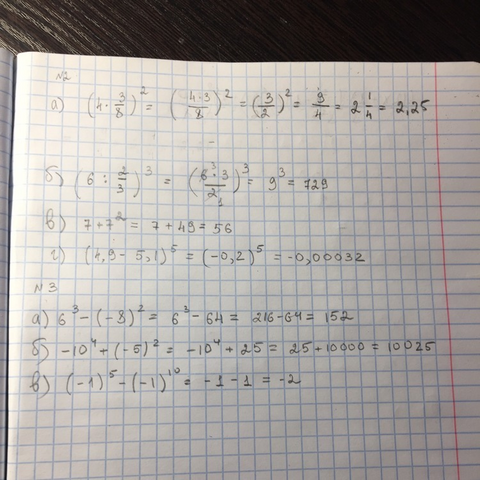 №2
а) (4 · 3/8)² = (4·3/8)² = (3/2)² = 9/4 = 2 1/4 = 2,25
б) (6 : 2/3)³ = (6³·3/2₁)³ = 9³ = 729
в) 7+7² = 7 + 49 = 56
г) (4,9 - 5,1)⁵ = (-0,2)⁵ = -0,00032
№3
а) 6³ - (-8)² = 6³ - 64 = 216-64 = 152
б) -10⁴ + (-5)² = -10⁴ + 25 = 25 + 10000 = 10025
в) (-1)⁵ - (-1)¹⁰ = -1 - 1 = -2